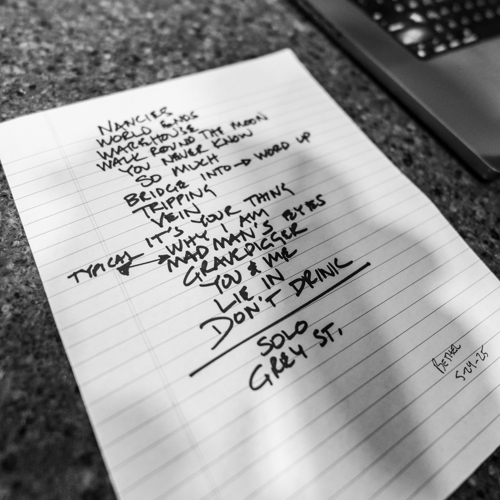 NANCIES
WORLD ENDS
WAREHOUSE
WALK ROUND THE MOON
YOU NEVER KNOW
SO MUCH
BRIDGE INTO → WORD UP
TRIPPING
VEIN
IT'S YOUR THING
WHY I AM
TYPICAL MADMAN'S EYES
GRAVEDIGGER
YOU & ME
LIE IN
DON'T DRINK
SOLO
GREY ST.
BETHEL
5-24-25